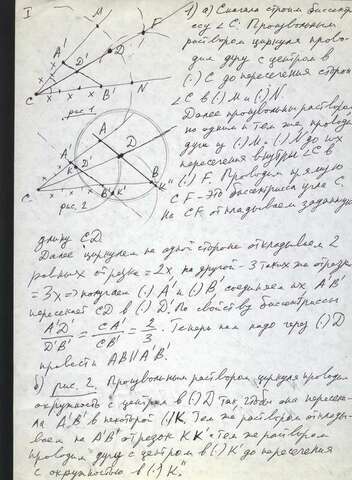 I
1) а) Сначала строим биссект-
рису ∠C. Произвольным
раствором циркуля прово-
дим дугу с центром в
(·) C до пересечения сторон
∠C в (·) M и (·) N.
Далее произвольным раствором
но одним и тем же проводим
дуги из (·) M и (·) N до их
пересечения внутри ∠C в
(·) F. Проводим прямую
CF - это биссектриса угла C.
На CF откладываем заданную
длину CD
Далее циркулем на одной стороне откладываем 2
равных отрезка = 2x, на другой - 3 таких же отрезка
= 3x => получаем (·) A' и (·) B' соединяем их A'B'
пересекает CD в (·) D'. По свойству биссектрисы
A'D'/D'B' = CA'/CB' = 2/3. Теперь нам надо через (·) D
провести AB || A'B'.
б) рис. 2. Произвольным раствором циркуля проводим
окружность с центром в (·) D так чтобы она пересек-
ла A'B' в некоторой (·) K. Тем же раствором откладываем
ваем на A'B' отрезок KK'. Тем же раствором
проводим дугу с центром в (·) K' до пересечения
с окружностью в (·) K''.
M
F
A
D'
D
C
B'
N
x
рис. 1
A
A'
D
K
D'
B
K''
B'
K'
C
рис. 2